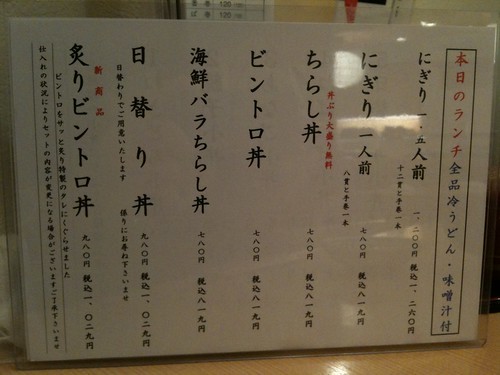 本日のランチ全品冷うどん・味噌汁付
にぎり一・五人前
十二貫と手巻一本
一、二〇〇円 税込一、二六〇円
にぎり一人前
八貫と手巻一本
七八〇円 税込八一九円
丼ぶり大盛り無料
ちらし丼
七八〇円 税込八一九円
ビントロ丼
七八〇円 税込八一九円
海鮮バラちらし丼
七八〇円 税込八一九円
日替り丼
日替わりでご用意いたします
係りにお尋ね下さいませ
九八〇円 税込一、〇二九円
新商品
炙りビントロ丼
ビントロをサッと炙り特製のタレにくぐらせました
九八〇円 税込一、〇二九円
仕入れの状況によりセットの内容が変更になる場合がございますご了承下さいませ
120
120